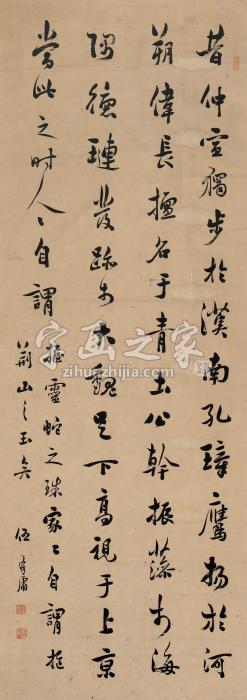 昔仲宣獨步於漢南孔璋鷹揚於河
朔偉長擅名于青土公幹振藻於海
隅德璉發跡於大魏足下高視于上京
當此之時人〻自謂握靈蛇之珠家〻自謂抱
荊山之玉矣 伍有庸
字画之家
zihuazhijia.com